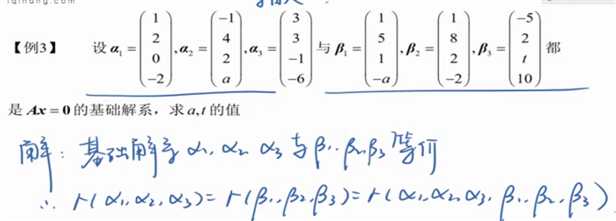 【例3】 设 α₁ = (1, 2, 0, −2), α₂ = (−1, 4, 2, a), α₃ = (3, 3, −1, −6) 与 β₁ = (1, 5, 1, −a), β₂ = (1, 8, 2, −2), β₃ = (−5, 2, t, 10) 都
是 Ax = 0 的基础解系，求 a,t 的值
解：基础解系 α₁, α₂, α₃ 与 β₁, β₂, β₃ 等价
∴ r(α₁, α₂, α₃) = r(β₁, β₂, β₃) = r(α₁, α₂, α₃, β₁, β₂, β₃)